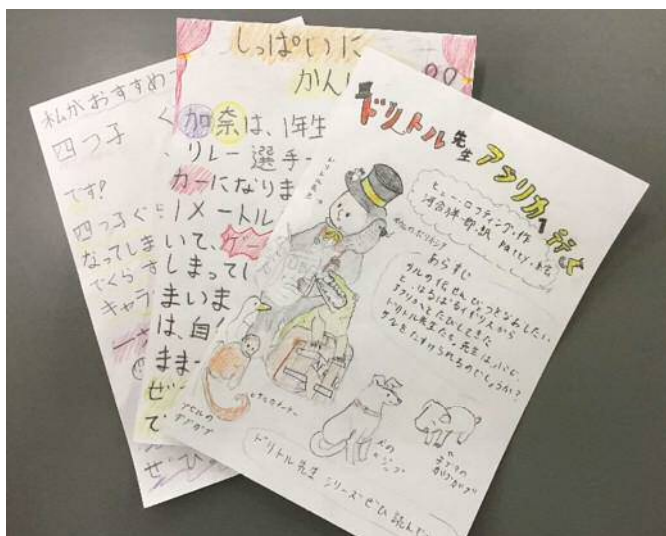 私がおすすめ
四つ子
です!
四つ子ぐ
なってしま
でくらす
キャプ
ぜひ
しっぱいに
かん
加奈は、1年生
、リレー選手
カーになりま
1メートル
いて、ゲー
しまって
まいま
は、自
まま
ぜ
で
ドリトル先生アフリカ行き
ヒュー・ロフティング・作
河合祥一郎・訳 patty・絵
あらすじ
サルの伝せんびょうをなおしたい
と、はるばるイギリスから
アフリカへとたびしてきた
ドリトル先生たち。先生は、ぶじ
サルをたすけられるのでしょうか?
ドリトル先生
アヒルの
ダブダブ
犬の
ジップ
子ブタの
ガブガブ
ドリトル先生シリーズぜひ読んで